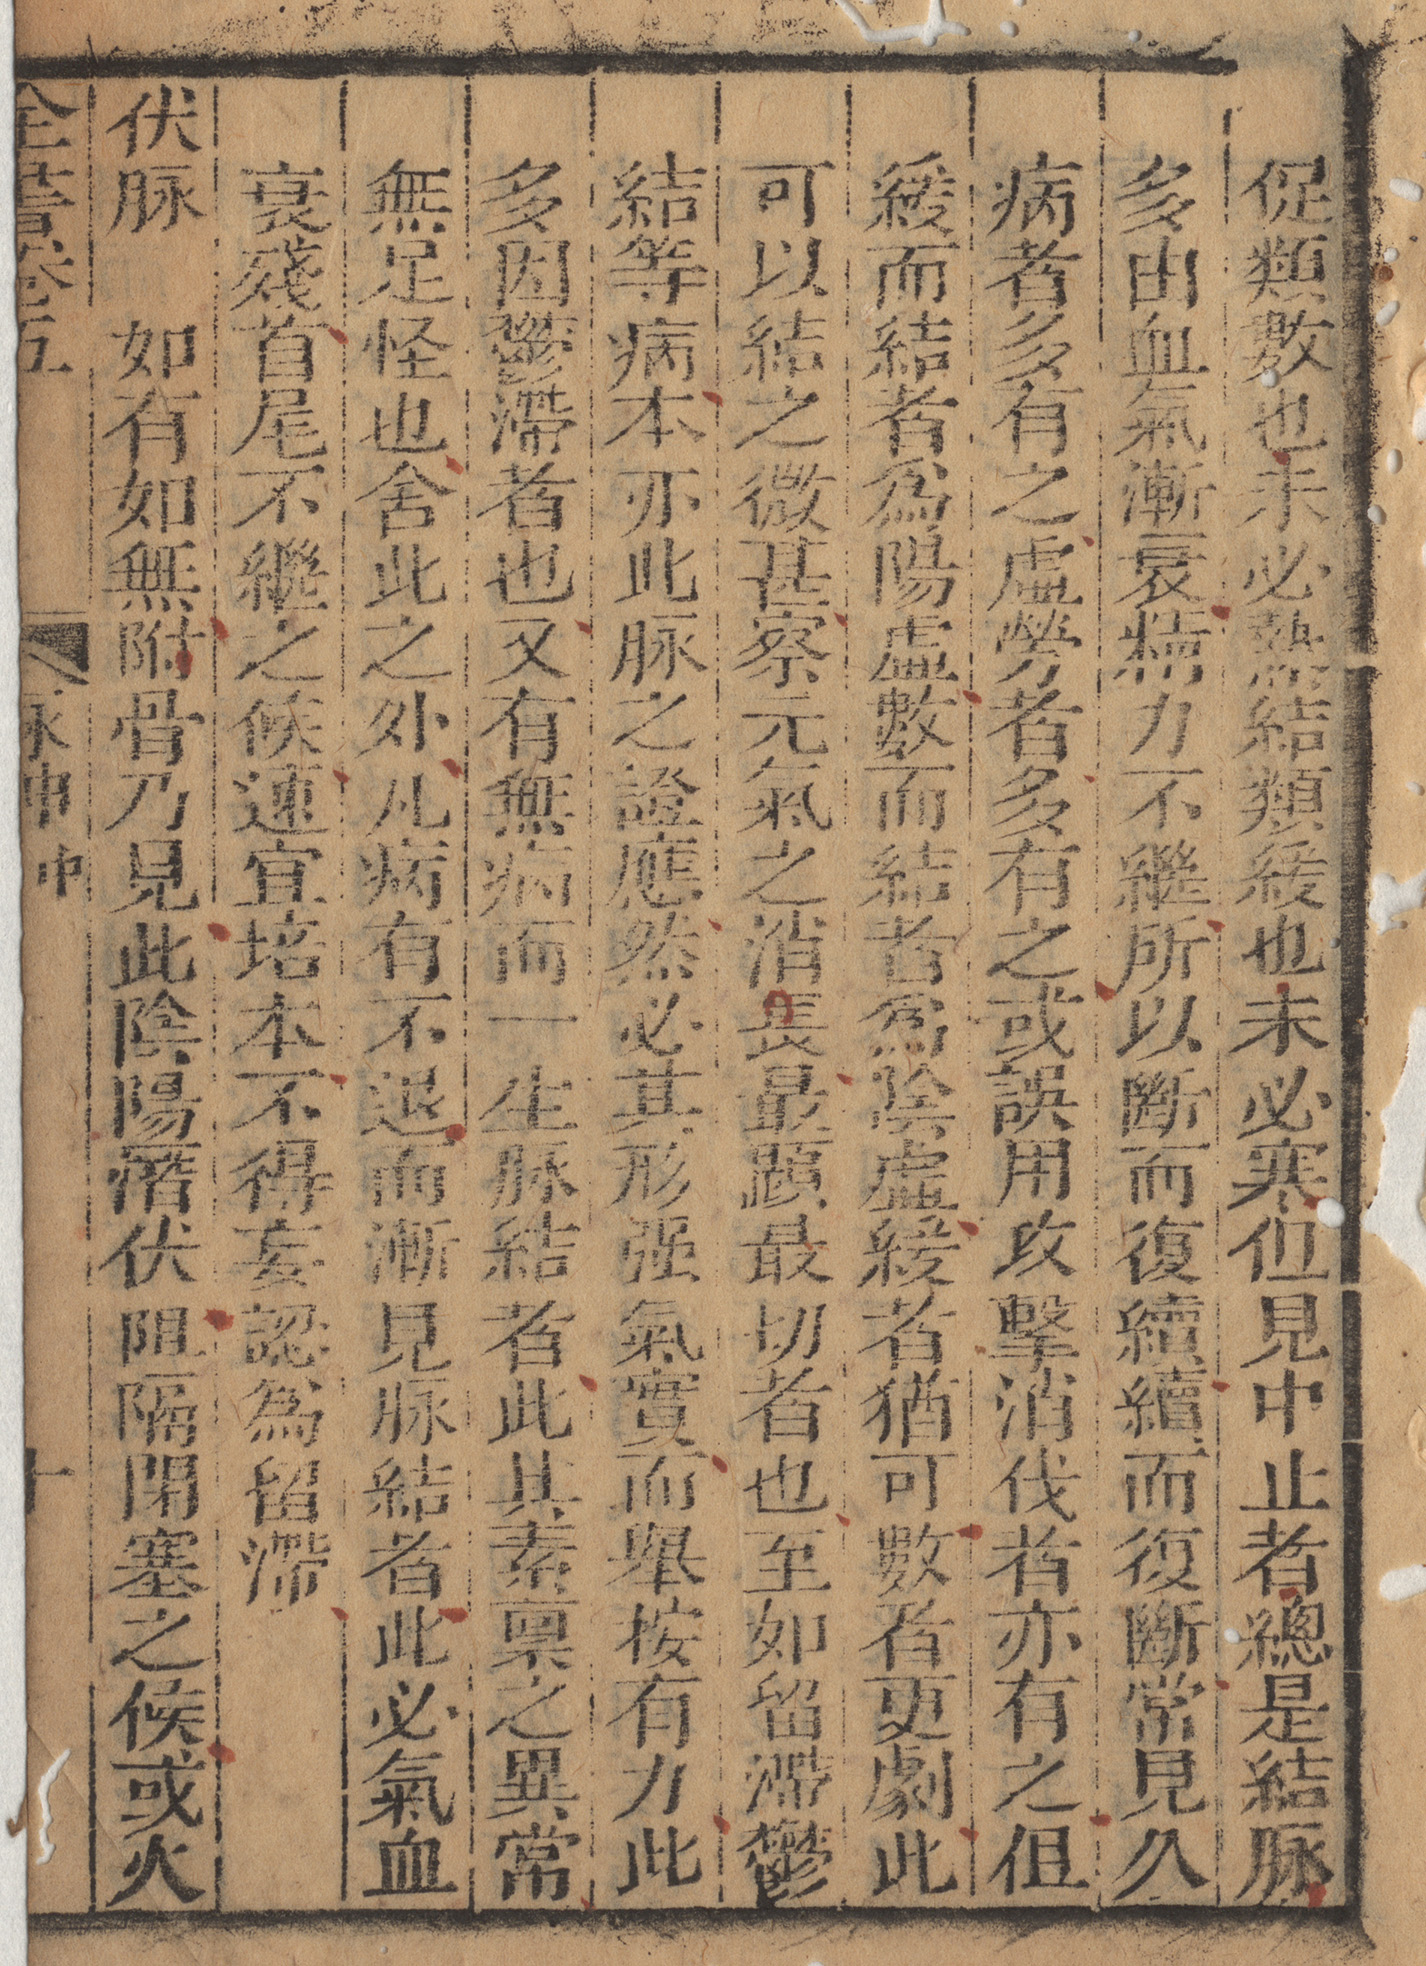 促類數也未必熱結類緩也未必寒但見中止者總是結脉
多由血氣漸衰精力不繼所以斷而復續續而復斷常見久
病者多有之虛勞者多有之或誤用攻擊消伐者亦有之但
緩而結者爲陽虛數而結者爲陰虛緩者猶可數者更劇此
可以結之微甚察元氣之消長最顯最切者也至如留滯鬱
結等病本亦此脉之證應然必其形强氣實而舉按有力此
多因鬱滯者也又有無病而一生脉結者此其素禀之異常
無足怪也舍此之外凡病有不退而漸見脉結者此必氣血
衰殘首尾不繼之候速宜培本不得妄認為留滯
伏脉　如有如無附骨乃見此陰陽潛伏阻隔閉塞之候或火
全書卷五　脉神中　十